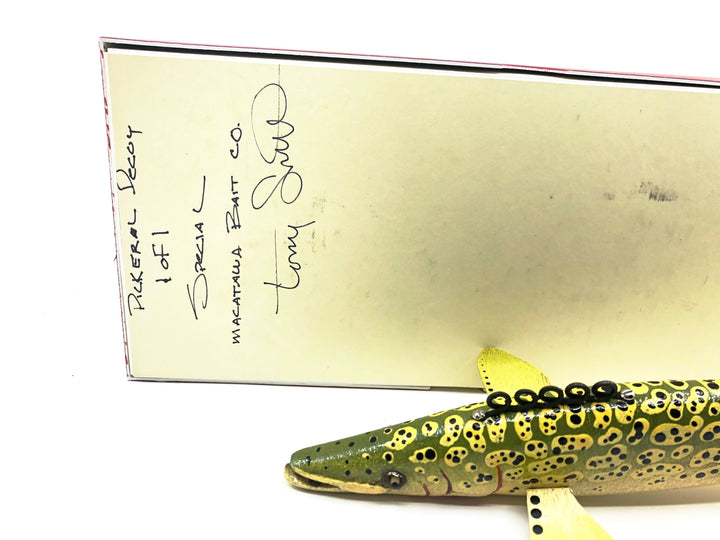 PICKERAL DECOY
1 OF 1
SPECIAL
MACATAWA BAIT CO.
Tony Smith